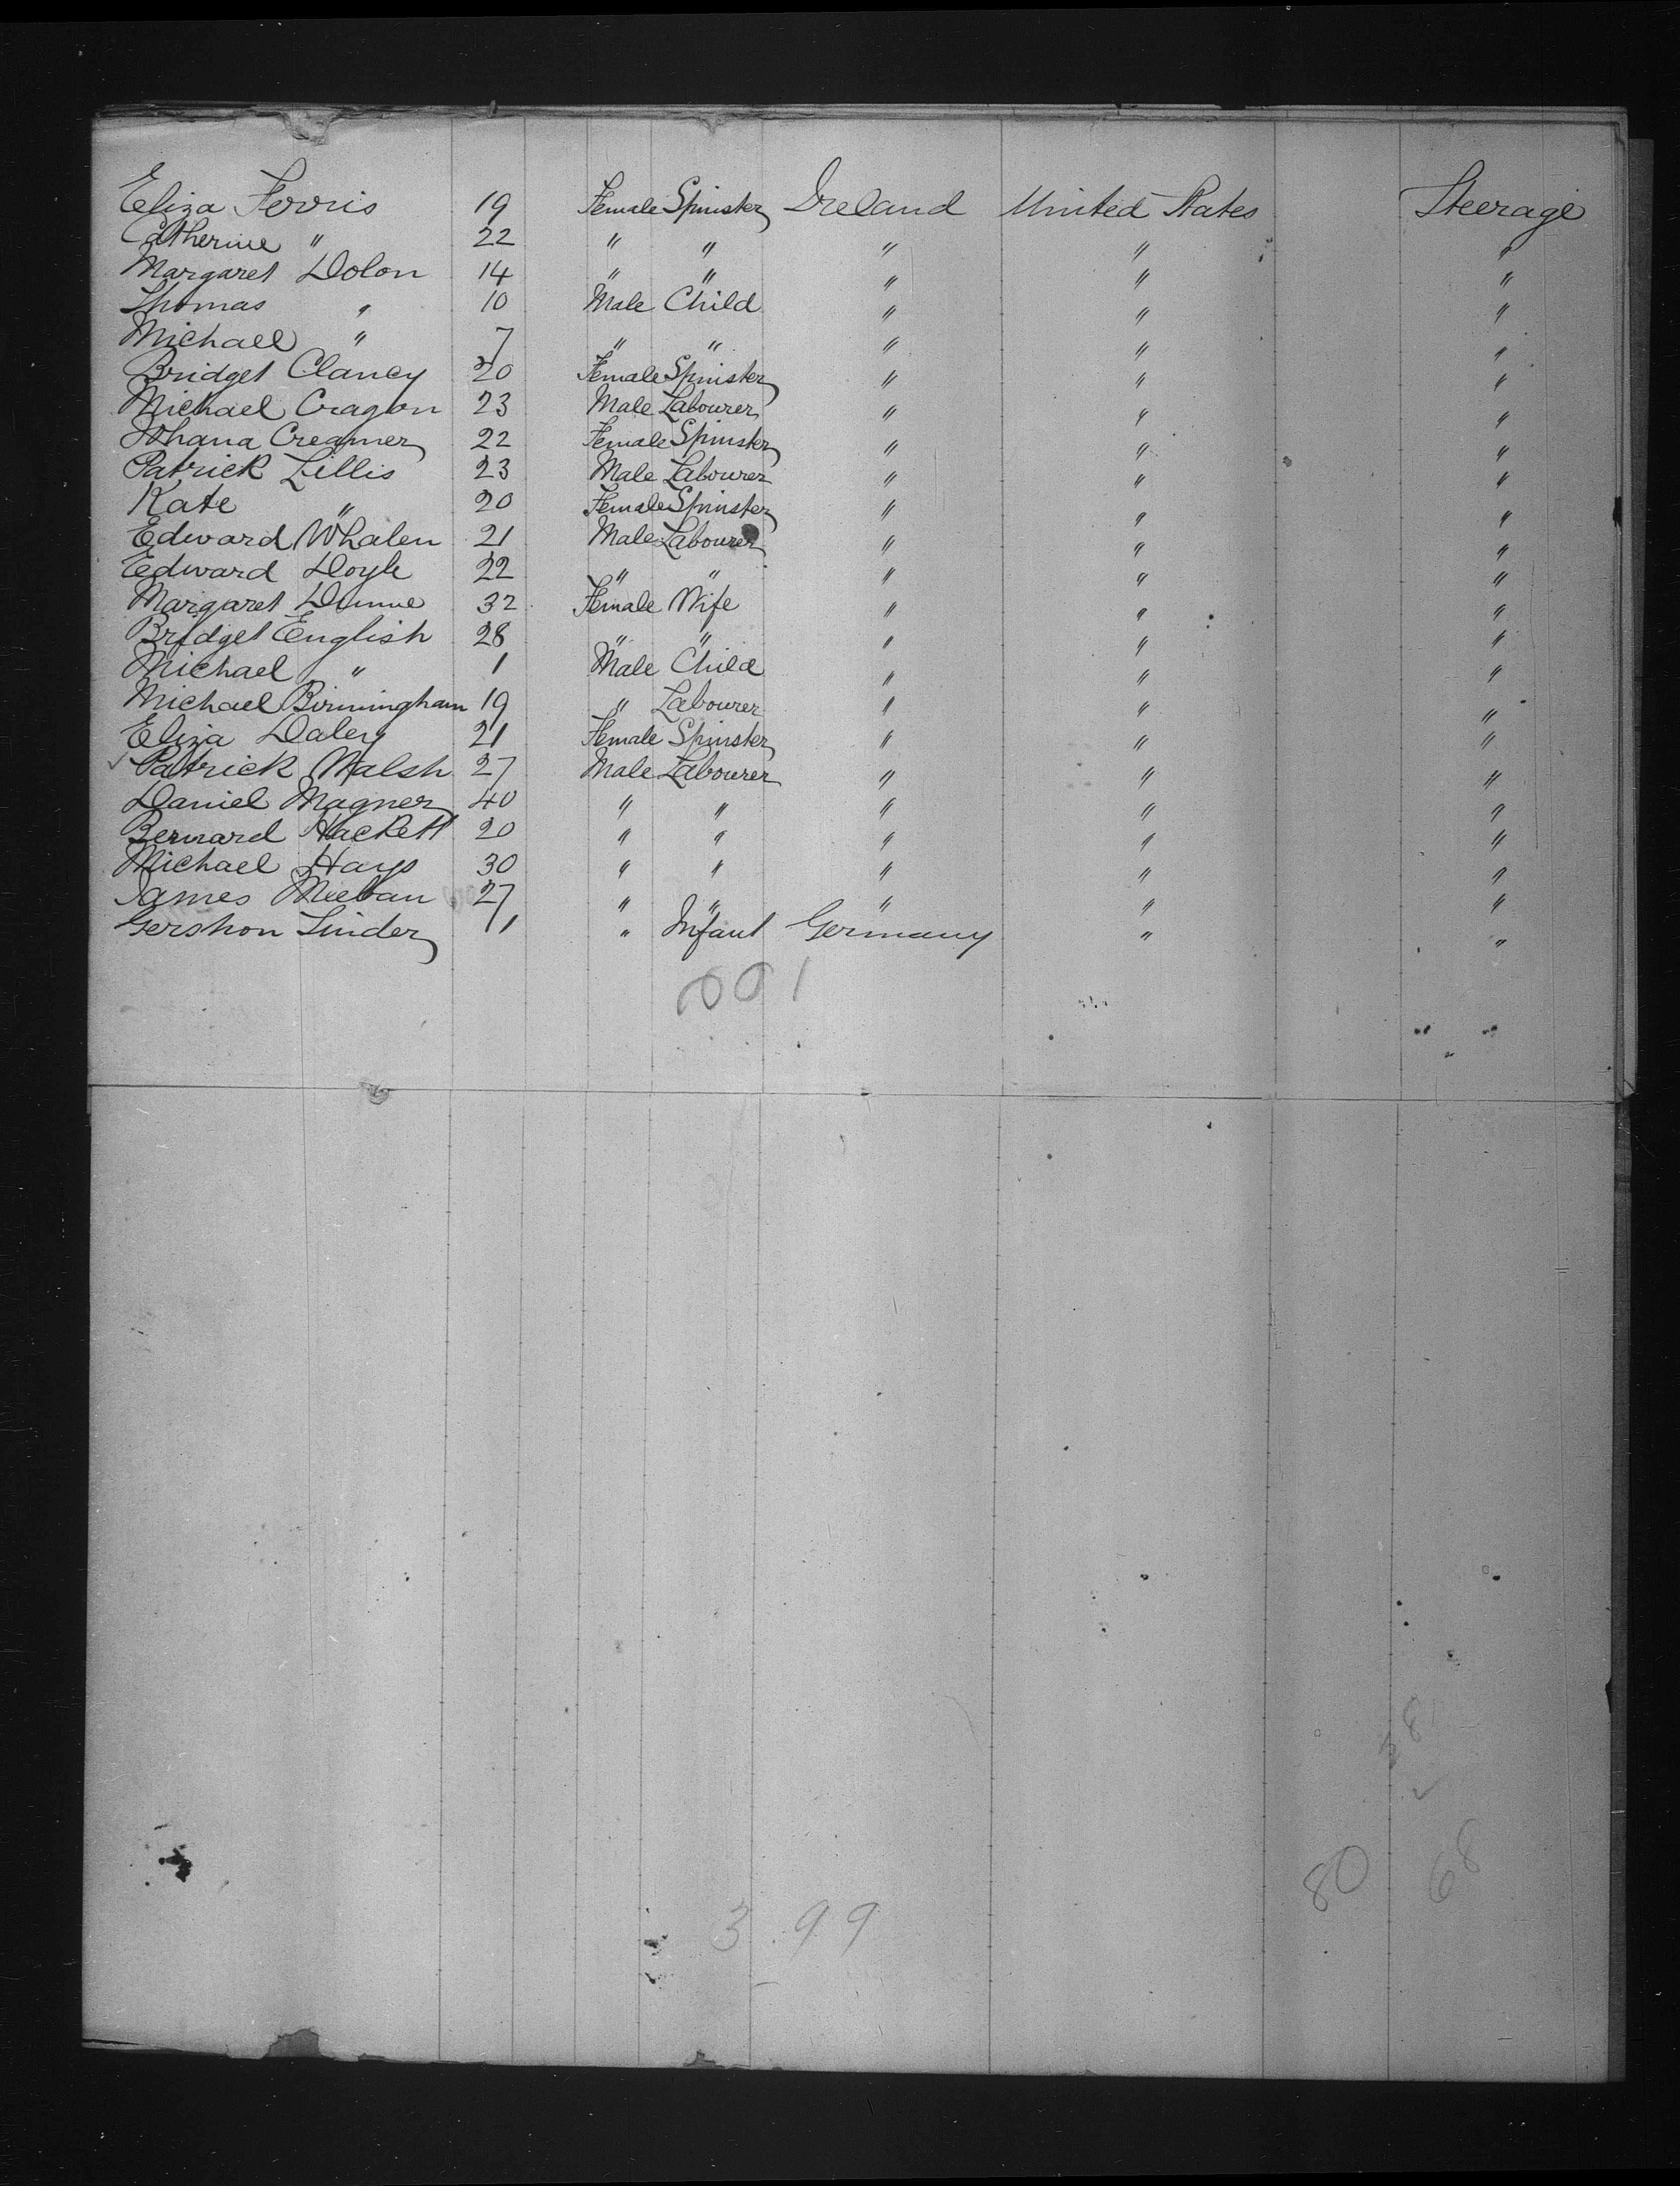 Eliza Ferris 19 Female Spinster Ireland United States Steerage
Catherine " 22 " " " " "
Margaret Dolon 14 " " " " "
Thomas " 10 Male Child " " "
Michael " 7 " " " " "
Bridget Clancy 20 Female Spinster " " "
Michael Cragon 23 Male Labourer " " "
Johana Creamer 22 Female Spinster " " "
Patrick Lillis 23 Male Labourer " " "
Kate " 20 Female Spinster " " "
Edward Whalen 21 Male Labourer " " "
Edward Doyle 22 " " " " "
Margaret Dunne 32 Female Wife " " "
Bridget English 28 " " " " "
Michael " 1 Male Child " " "
Michael Birmingham 19 " Labourer " " "
Eliza Daley 21 Female Spinster " " "
Patrick Walsh 27 Male Labourer " " "
Daniel Magner 40 " " " " "
Bernard Hackett 20 " " " " "
Michael Hays 30 " " " " "
James Meehan 27 " " " " "
Gershon Linder 11 " Infant Germany " "
38
80 68
3 99